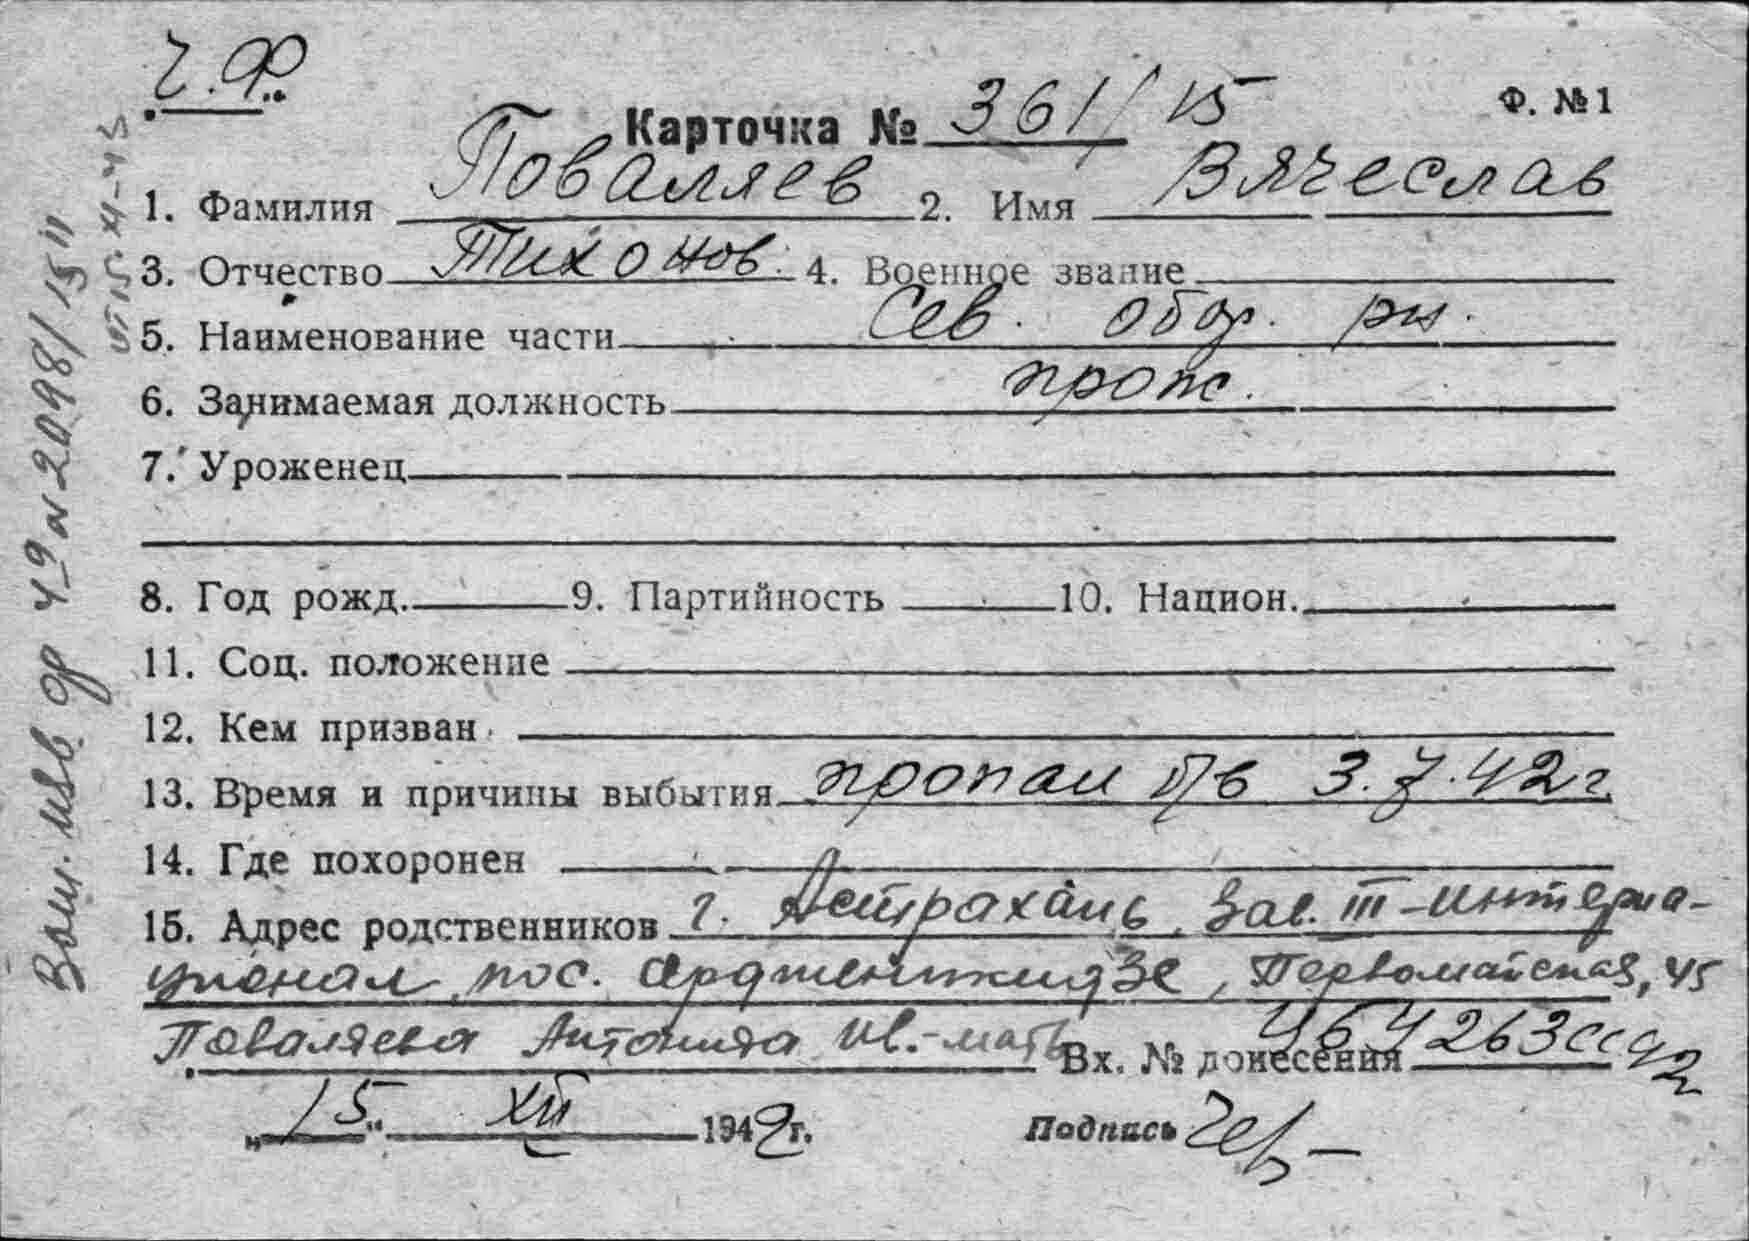 Ч.Ф.
Карточка № 361/15 Ф. №1
1. Фамилия Поваляев 2. Имя Вячеслав
3. Отчество Тихонов. 4. Военное звание
5. Наименование части Сев. обор. рн.
6. Занимаемая должность
7. Уроженец
8. Год рожд. 9. Партийность 10. Национ.
11. Соц. положение
12. Кем призван
13. Время и причины выбытия пропал б/в 3.7.42г.
14. Где похоронен
15. Адрес родственников г. Астрахань, Зав. III-интерна-
ционал, пос. Орджоникидзе, Первомайская, 45
Поваляева Антонина Ив.-мать Вх. № донесения
„15“ XII 1942г. Подпись
Вош. изв. ор 49 № 2098/15 11
от 15-XI-43